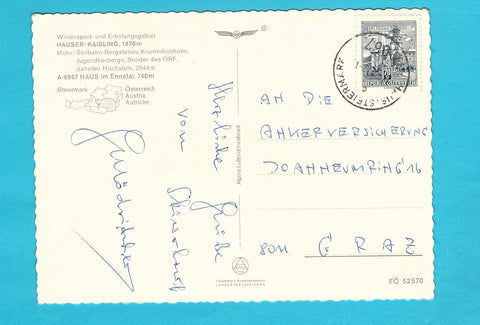 Wintersport und Erholungsgebiet
HAUSER-KAIBLING, 1870m
Motiv: Seilbahn-Bergstation, Krummholzhütte,
Jugendherberge, Sender des ORF,
dahinter Höchstein, 2544m
A-8967 HAUS im Ennstal, 740m
Steiermark
Österreich
Austria
Autriche
Herzliche Grüße
vom
Skiurlaub
Alpine Luftbild Innsbruck
REPUBLIK ÖSTERREICH
STEIERMARK
AN DIE
ANKERVERSICHERUNG
JOANNEUMRING 16
8011 GRAZ
FÖ 52570